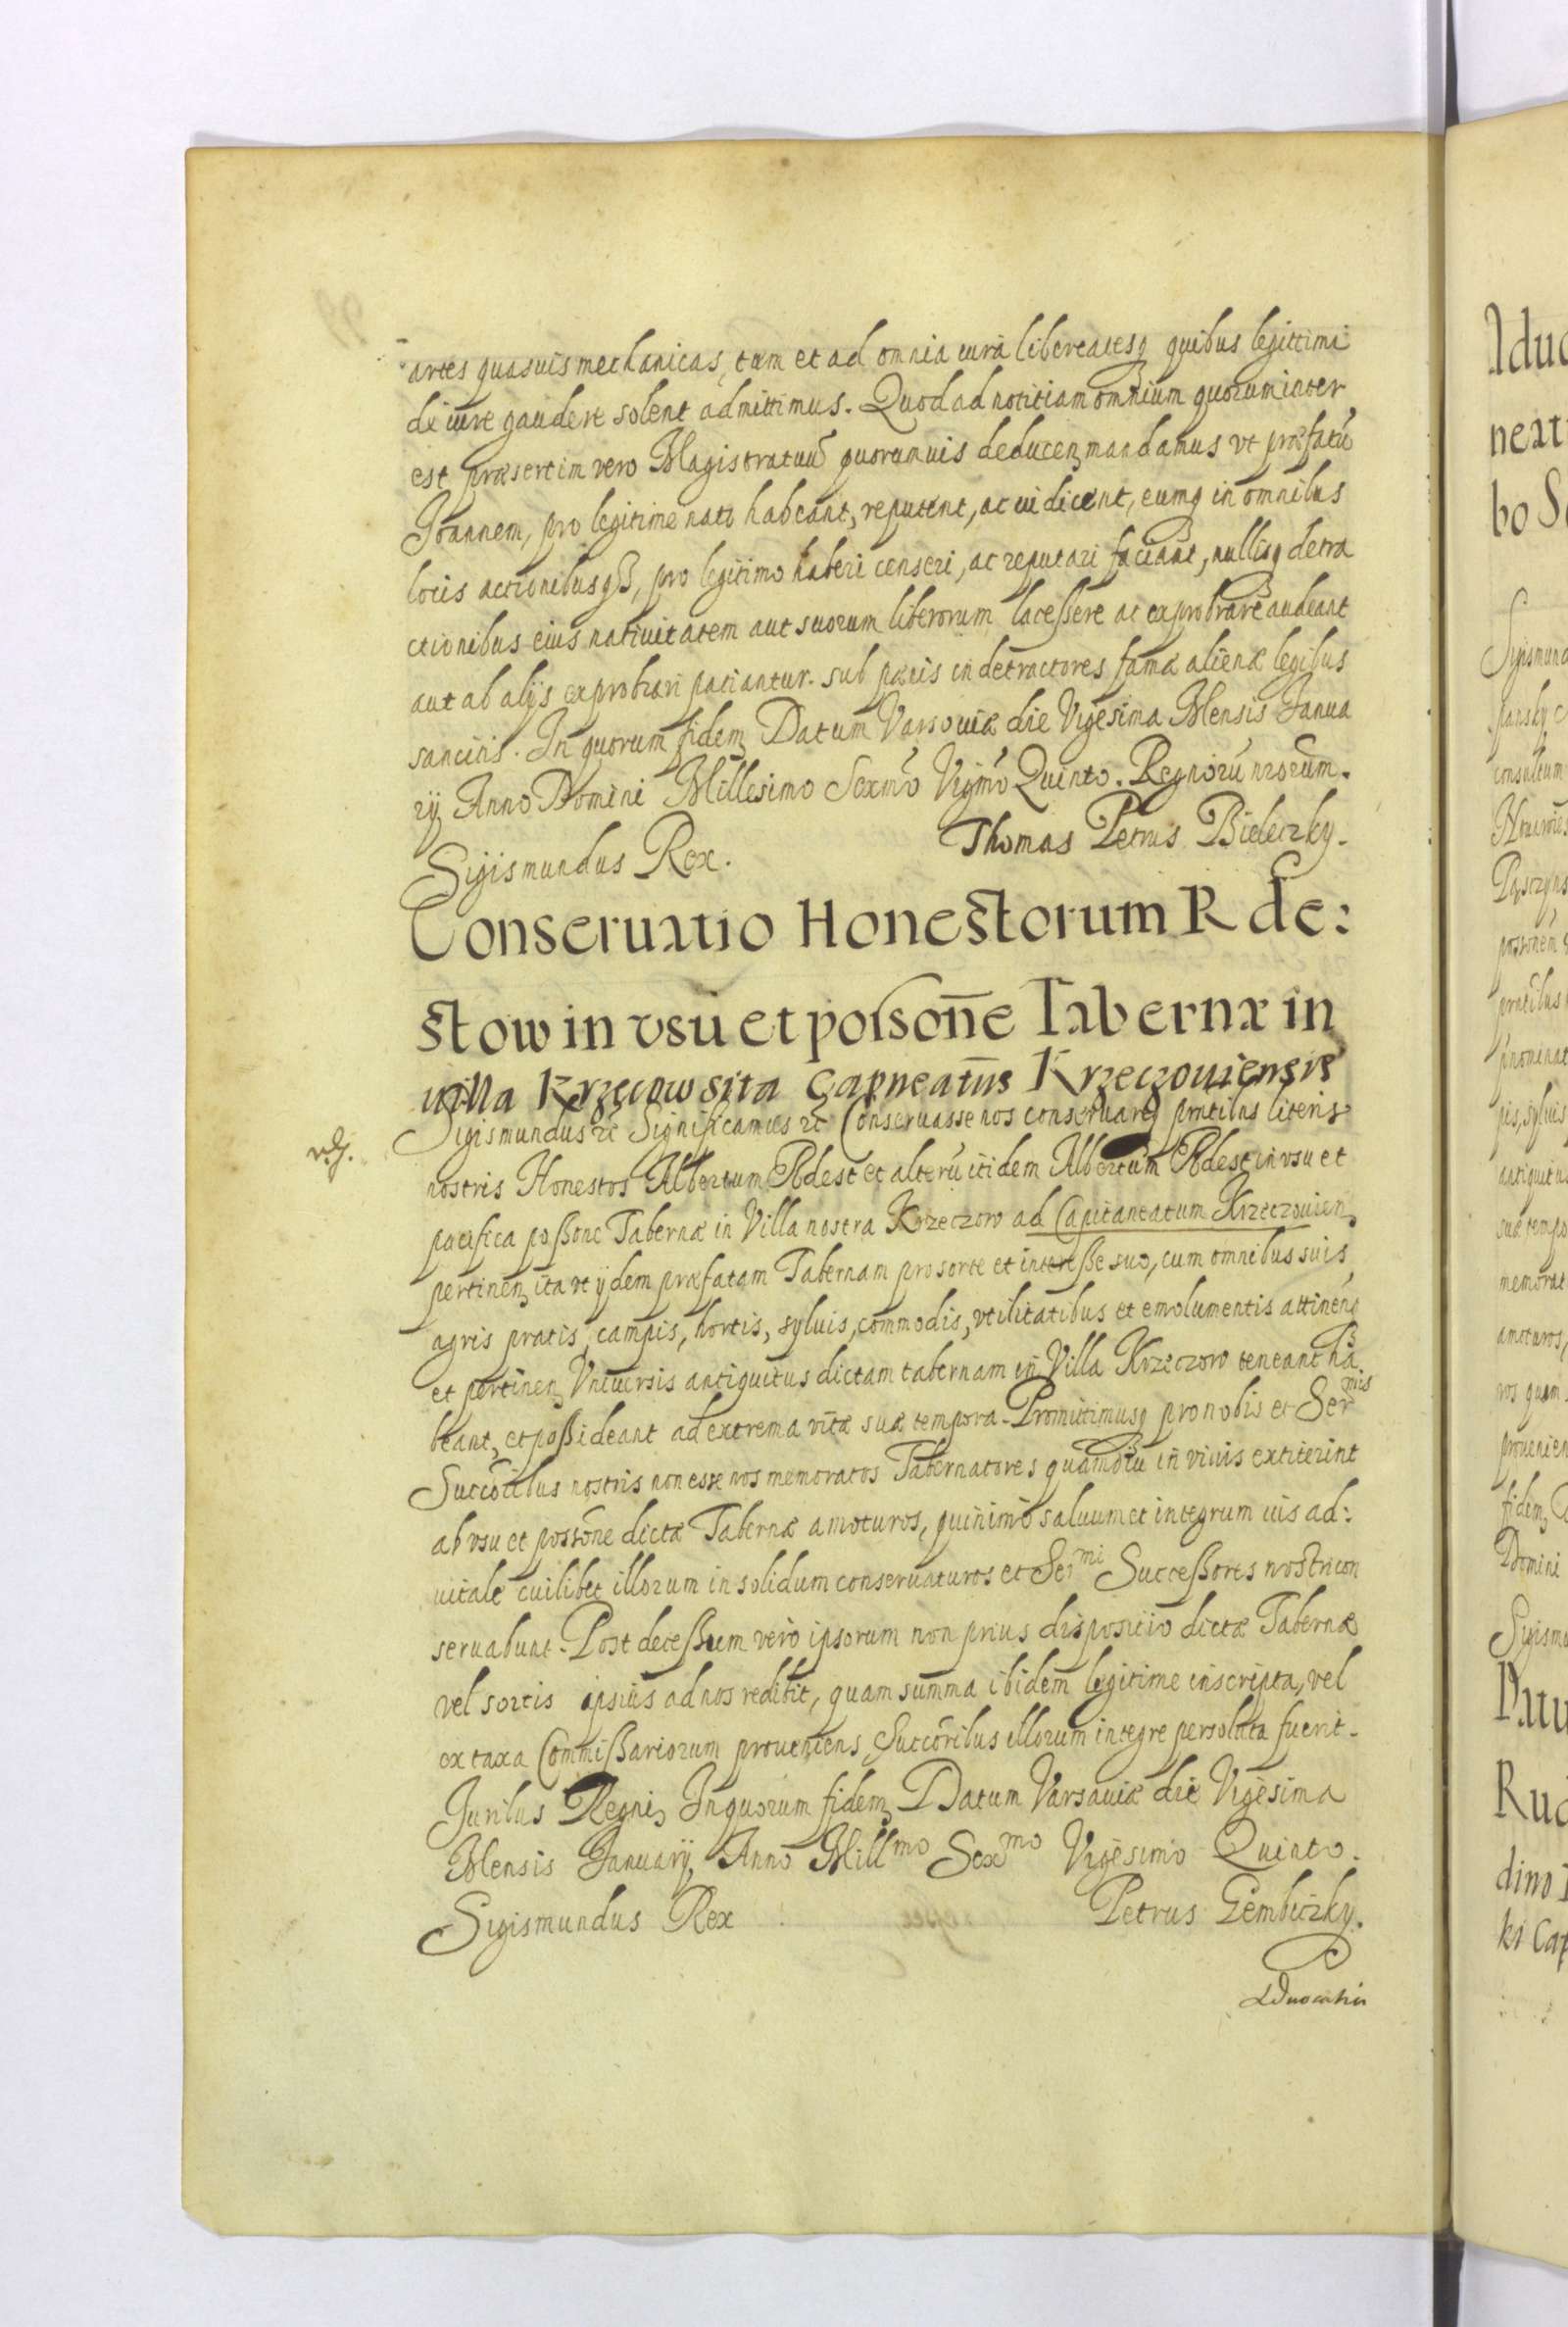 artes quasuis mechanicas, tam et ad omnia iura libertatesq quibus legittimi
de iure gaudere solent admittimus. Quod ad notitiam omnium quorum inter
est præsertim vero Magistratuū quorumuis deducen mandamus vt præfatū
Joannem, pro legitime nato habeant, reputent, ac iudicent, eumq in omnibus
locis actionibusqß, pro legitimo haberi censeri, ac reputari faciant, nullisq detra
ctionibus eius natiuitatem aut suorum liberorum lacessere ac exprobrare audeant
aut ab alijs exprobrari patiantur. sub pœnis in detractores famæ alienæ legibus
sancitis. In quorum fidem Datum Varsouiæ die Vigesima Mensis Janua
rij Anno Domini Millesimo Sexmō Vigmō Quinto. Regnorū nrorum.
Sigismundus Rex. Thomas Petrus Bieleczky.
Conseruatio Honestorum Rde:
stow in vsu et possonē Tabernæ in
villa Krzeczow sita Capneatus Krzeczouiensis
Sigismundus etc Significamus etc Conseruasse nos conseruareq pntibus literis
nostris Honestos Albertum Rdest et alterū itidem Albertum Rdest in vsu et
pacifica possone Tabernæ in Villa nostra Krzeczow ad Capitaneatum Krzeczouien
pertinen ita vt ijdem præfatam Tabernam pro sorte et interesse suo, cum omnibus suis
agris pratis, campis, hortis, syluis, commodis, vtilitatibus et emolumentis attinenq
et pertinen Vniuersis antiquitus dictam tabernam in Villa Krzeczow teneant ha
beant, et possideant ad extrema vitæ suæ tempora. Promittimusq pro nobis et Sermis
Succoribus nostris non esse nos memoratos Tabernatores quamdiu in viuis extiterint
ab vsu et possone dictæ Tabernæ amoturos, quinimo saluum et integrum ius ad:
vitale cuilibet illorum in solidum conseruaturos et Sermi Successores nostri con
seruabunt. Post decessum vero ipsorum non prius dispositio dictæ Tabernæ
vel sortis ipsius ad nos redibit, quam summa ibidem legitime inscripta, vel
ex taxa Commissariorum proueniens Succoribus illorum integre persoluta fuerit.
Juribus Regni, In quorum fidem Datum Varsauiæ die Vigesima
Mensis Januarij Anno Millmo Sexmo Vigesimo Quinto.
Sigismundus Rex Petrus Gembiczky.
Aduocatiæ